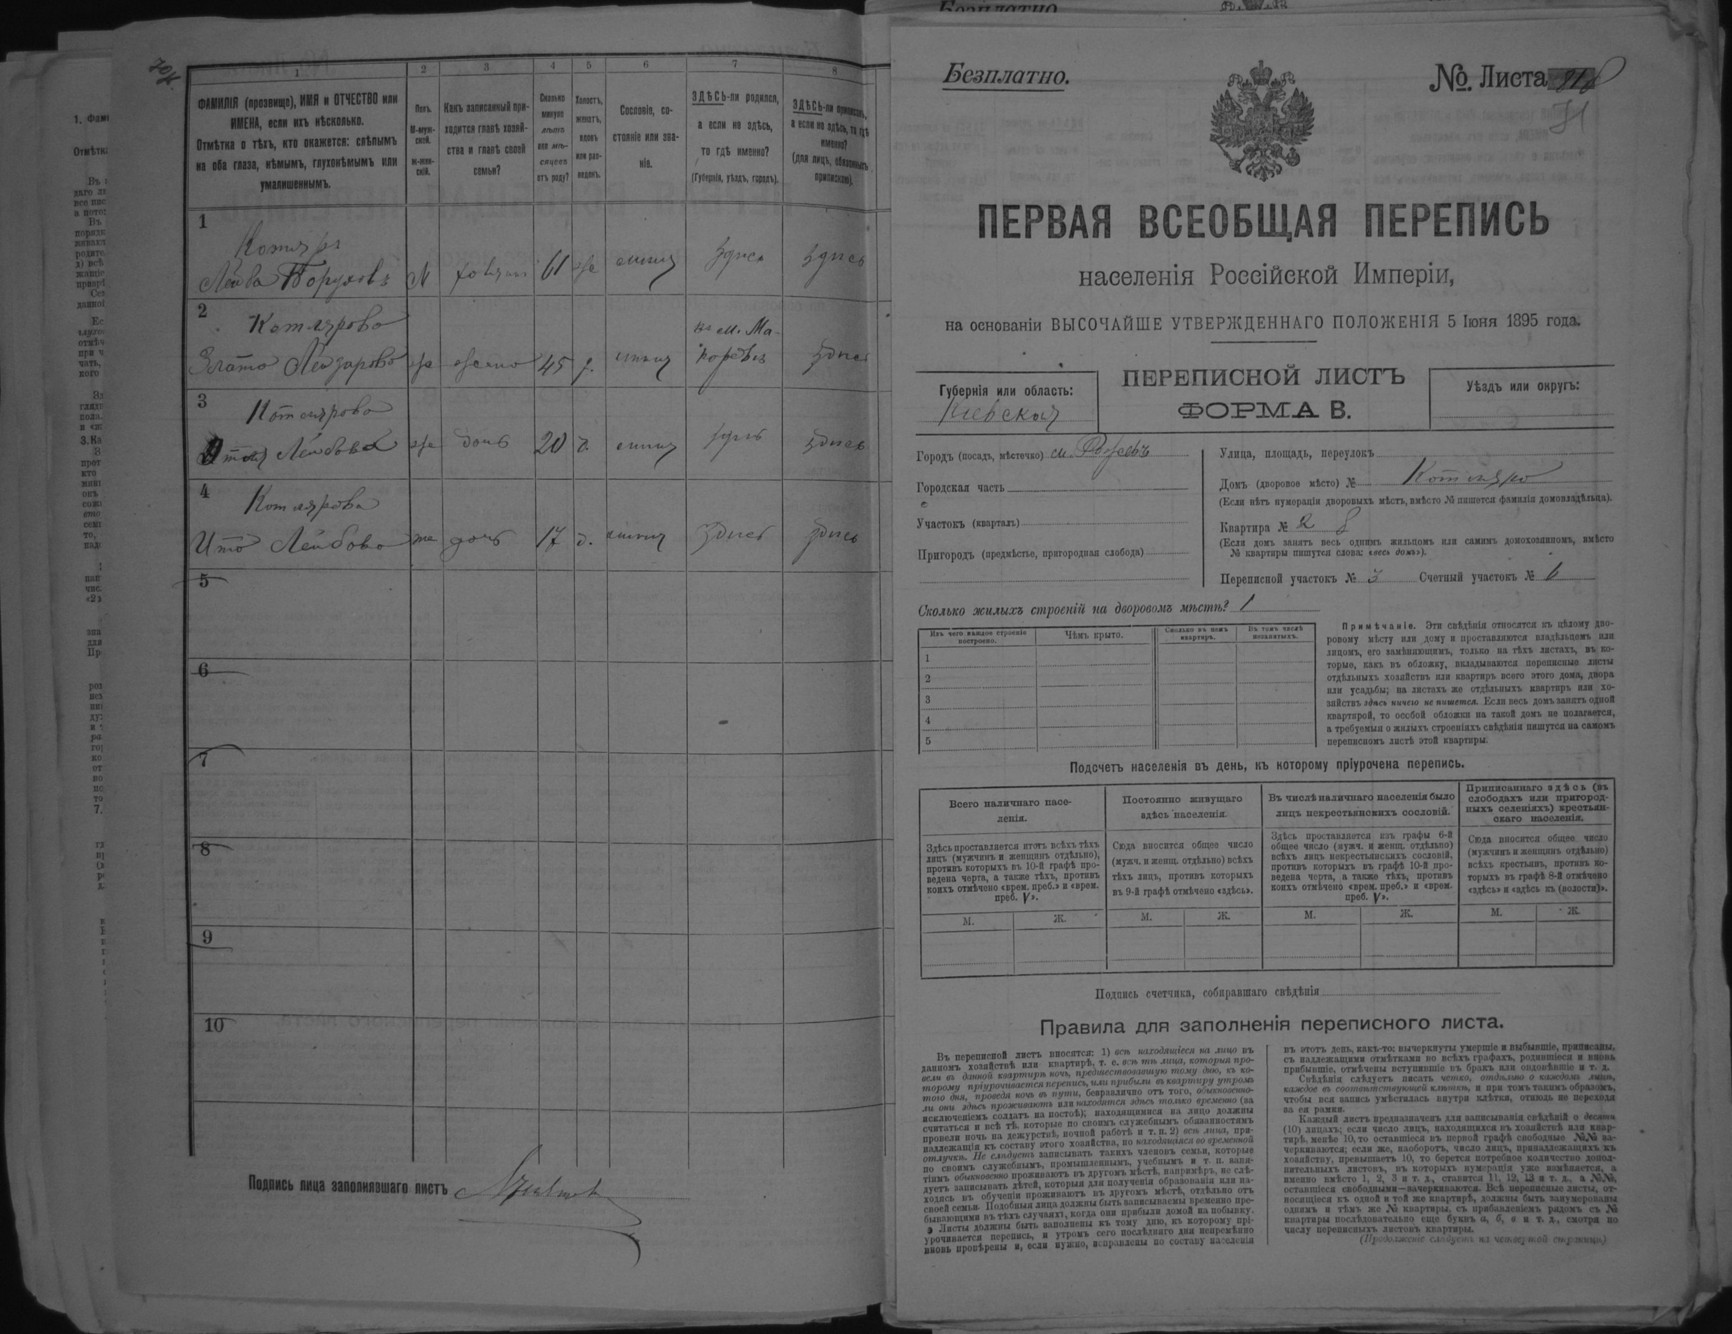 1
2
3
4
5
6
7
8
ФАМИЛІЯ (прозвище), ИМЯ и ОТЧЕСТВО или
ИМЕНА, если ихъ нѣсколько.
Отмѣтка о тѣхъ, кто окажется: слѣпымъ
на оба глаза, нѣмымъ, глухонѣмымъ или
умалишеннымъ.
Полъ.
М-муж-
ской.
ж-жен-
скій.
Какъ записанный при-
ходится главѣ хозяй-
ства и главѣ своей
семьи?
Сколько
минуло
лѣтъ
или мѣ-
сяцевъ
отъ роду?
Холостъ,
женатъ,
вдовъ
или раз-
веденъ.
Сословіе, со-
стояніе или зва-
ніе.
ЗДѢСЬ-ли родился,
а если не здѣсь,
то гдѣ именно?
(Губернія, уѣздъ, городъ).
ЗДѢСЬ-ли приписанъ,
а если не здѣсь, то гдѣ
именно?
(для лицъ, обязанныхъ
припискою).
1
Котляръ
Лейба Боруховъ М хозяинъ 61 же здись здись
2
Котлярова
Злата Лейзарова же жена 45 з. м. Ма-
каровъ здись
3
Котлярова
Лейбова же дочь 20 д. здись здись
4
Котлярова
Ита Лейбова же дочь 17 д. здись здись
5
6
7
8
9
10
Подпись лица заполнявшаго листъ
Безплатно.
№. Листа
ПЕРВАЯ ВСЕОБЩАЯ ПЕРЕПИСЬ
населенія Россійской Имперіи,
на основаніи ВЫСОЧАЙШЕ УТВЕРЖДЕННАГО ПОЛОЖЕНІЯ 5 Іюня 1895 года.
Губернія или область:
Кіевская
ПЕРЕПИСНОЙ ЛИСТЪ
ФОРМА В.
Уѣздъ или округъ:
Городъ (посадъ, мѣстечко) м. Рожевъ
Городская часть
Участокъ (кварталъ)
Пригородъ (предмѣстье, пригородная слобода)
Улица, площадь, переулокъ
Домъ (дворовое мѣсто) № Котляра
(Если нѣтъ нумераціи дворовыхъ мѣстъ, вмѣсто № пишется фамилія домовладѣльца).
Квартира № 2
(Если домъ занятъ весь однимъ жильцомъ или самимъ домохозяиномъ, вмѣсто
№ квартиры пишутся слова: «весь домъ»).
Переписной участокъ № 3 Счетный участокъ № 6
Сколько жилыхъ строеній на дворовомъ мѣстѣ? 1
Изъ чего каждое строеніе
построено.
Чѣмъ крыто.
Сколько въ немъ
квартиръ.
Въ томъ числѣ
незанятыхъ.
1
2
3
4
5
Примѣчаніе. Эти свѣдѣнія относятся къ цѣлому дво-
ровому мѣсту или дому и проставляются владѣльцемъ или
лицомъ, его замѣняющимъ, только на тѣхъ листахъ, въ ко-
торые, какъ въ обложку, вкладываются переписные листы
отдѣльныхъ хозяйствъ или квартиръ всего этого дома, двора
или усадьбы; на листахъ же отдѣльныхъ квартиръ или хо-
зяйствъ здѣсь ничего не пишется. Если весь домъ занятъ одной
квартирой, то особой обложки на такой домъ не полагается,
а требуемыя о жилыхъ строеніяхъ свѣдѣнія пишутся на самомъ
переписномъ листѣ этой квартиры.
Подсчетъ населенія въ день, къ которому пріурочена перепись.
Всего наличнаго насе-
ленія.
Здѣсь проставляется итогъ всѣхъ тѣхъ
лицъ (мужчинъ и женщинъ отдѣльно),
противъ которыхъ въ 10-й графѣ про-
ведена черта, а также тѣхъ, противъ
коихъ отмѣчено «врем. преб.» и «врем.
преб. V».
М. Ж.
Постоянно живущаго
здѣсь населенія.
Сюда вносится общее число
(мужч. и женщ. отдѣльно) всѣхъ
тѣхъ лицъ, противъ которыхъ
въ 9-й графѣ отмѣчено «здѣсь».
М. Ж.
Въ числѣ наличнаго населенія было
лицъ некрестьянскихъ сословій.
Здѣсь проставляется изъ графы 6-й
общее число (мужч. и женщ. отдѣльно)
всѣхъ лицъ некрестьянскихъ сословій,
противъ которыхъ въ графѣ 10-й про-
ведена черта, а также тѣхъ, противъ
коихъ отмѣчено «врем. преб.» и «врем.
преб. V».
М. Ж.
Приписаннаго здѣсь (въ
слободахъ или пригород-
ныхъ селеніяхъ) крестьян-
скаго населенія.
Сюда вносится общее число
(мужчинъ и женщинъ отдѣльно)
всѣхъ крестьянъ, противъ ко-
торыхъ въ графѣ 8-й отмѣчено
«здѣсь» и «здѣсь къ (волости)».
М. Ж.
Подпись счетчика, собиравшаго свѣдѣнія
Правила для заполненія переписного листа.
Въ переписной листъ вносятся: 1) всѣ находящіеся на лицо въ
данномъ хозяйствѣ или квартирѣ, т. е. всѣ тѣ лица, которыя про-
вели въ данной квартирѣ ночь, предшествовавшую тому дню, къ ко-
торому пріурочивается перепись, или прибыли въ квартиру утромъ
того дня, проведя ночь въ пути, безразлично отъ того, обыкновенно-
ли они здѣсь проживаютъ или находятся здѣсь только временно (за
исключеніемъ солдатъ на постоѣ); находящимися на лицо должны
считаться и всѣ тѣ, которые по своимъ служебнымъ обязанностямъ
провели ночь на дежурствѣ, ночной работѣ и т. п. 2) всѣ лица, при-
надлежащія къ составу этого хозяйства, но находящіяся во временной
отлучкѣ. Не слѣдуетъ записывать такихъ членовъ семьи, которые
по своимъ служебнымъ, промышленнымъ, учебнымъ и т. п. заня-
тіямъ обыкновенно проживаютъ въ другомъ мѣстѣ, напримѣръ, не слѣ-
дуетъ записывать дѣтей, которыя для полученія образованія или на-
ходясь въ обученіи проживаютъ въ другомъ мѣстѣ, отдѣльно отъ
своей семьи. Подобныя лица должны быть записываемы временно пре-
бывающими въ тѣхъ случаяхъ, когда они прибыли домой на побывку.
Листы должны быть заполнены къ тому дню, къ которому прі-
урочивается перепись, и утромъ сего послѣдняго дня непремѣнно
вновь провѣрены и, если нужно, исправлены по составу населенія
въ этотъ день, какъ-то: вычеркнуты умершіе и выбывшіе, приписаны,
съ надлежащими отмѣтками во всѣхъ графахъ, родившіеся и вновь
прибывшіе, отмѣчены вступившіе въ бракъ или овдовѣвшіе и т. д.
Свѣдѣнія слѣдуетъ писать четко, отдѣльно о каждомъ лицѣ,
каждое въ соотвѣтствующей клѣткѣ, и при томъ такимъ образомъ,
чтобы вся запись умѣстилась внутри клѣтки, отнюдь не переходя
за ея рамки.
Каждый листъ предназначенъ для записыванія свѣдѣній о десяти
(10) лицахъ; если число лицъ, находящихся въ хозяйствѣ или квар-
тирѣ, менѣе 10, то оставшіеся въ первой графѣ свободные №№ за-
черкиваются; если же, наоборотъ, число лицъ, принадлежащихъ къ
хозяйству, превышаетъ 10, то берется потребное количество допол-
нительныхъ листовъ, въ которыхъ нумерація уже измѣняется, а
именно вмѣсто 1, 2, 3 и т. д., ставится 11, 12, 13 и т. д., а №№,
оставшіеся свободными—зачеркиваются. Всѣ переписные листы, от-
носящіеся къ одной и той же квартирѣ, должны быть занумерованы
однимъ и тѣмъ же № квартиры, съ прибавленіемъ рядомъ съ №
квартиры послѣдовательно еще буквъ а, б, в и т. д., смотря по
числу переписныхъ листовъ квартиры.
(Продолженіе слѣдуетъ на четвертой страницѣ)